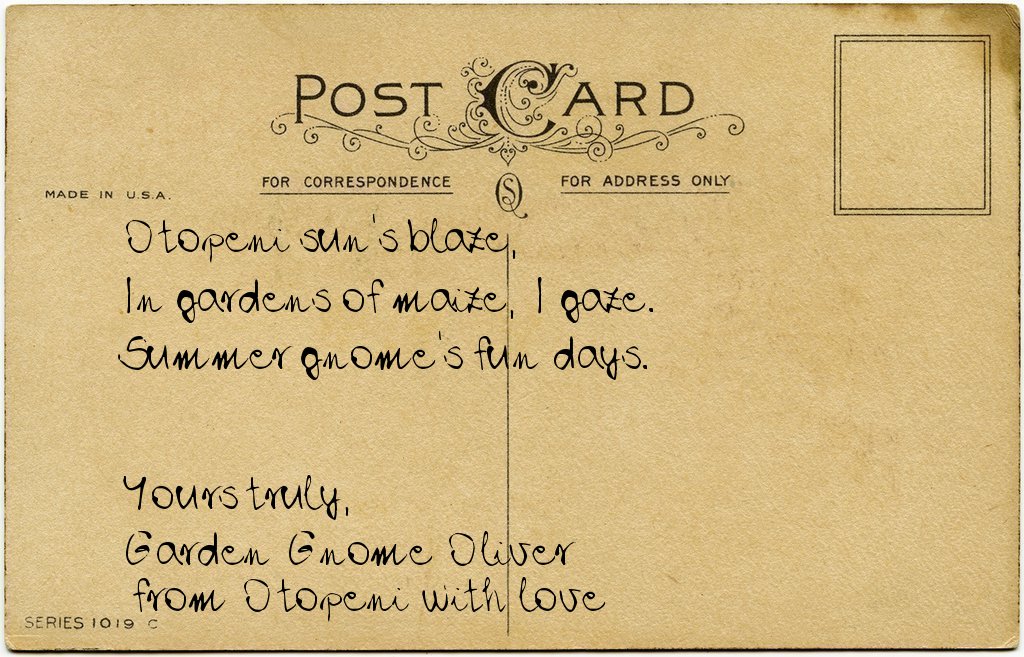 POST CARD
FOR CORRESPONDENCE
FOR ADDRESS ONLY
MADE IN U.S.A.
Otopeni sun's blaze,
In gardens of maize, I gaze.
Summer gnome's fun days.
Yours truly,
Garden Gnome Oliver
from Otopeni with love
SERIES 1019 C